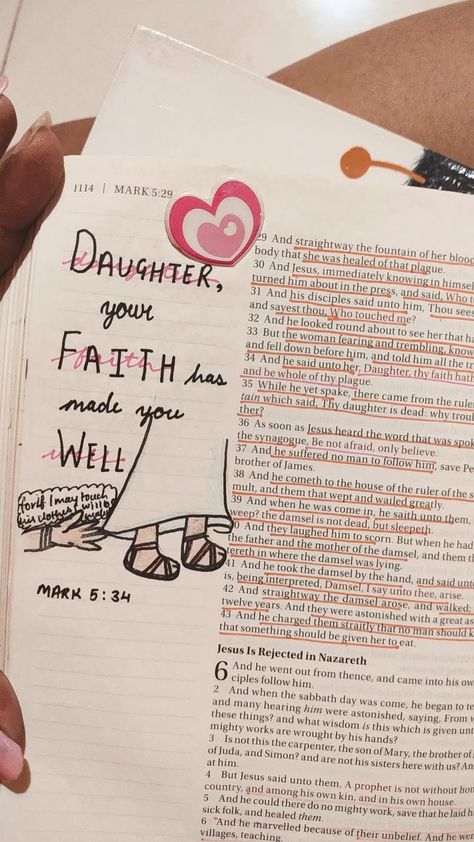 1114 | MARK 5:29
DAUGHTER,
your
FAITH has
made you
WELL
for if I may touch
his clothes I will b
MARK 5:34
29 And straightway the fountain of her blood
body that she was healed of that plague.
30 And Jesus, immediately knowing in himsel
turned him about in the press, and said, Who
31 And his disciples said unto him, Thou sees
and sayest thou, Who touched me?
32 And he looked round about to see her that ha
33 But the woman fearing and trembling, know
and fell down before him, and told him all the tr
34 And he said unto her, Daughter, thy faith hath
and be whole of thy plague.
35 While he yet spake, there came from the ruler
tain which said, Thy daughter is dead: why troubl
ther?
36 As soon as Jesus heard the word that was spok
the synagogue, Be not afraid, only believe.
37 And he suffered no man to follow him, save Pe
brother of James.
38 And he cometh to the house of the ruler of the s
mult, and them that wept and wailed greatly.
39 And when he was come in, he saith unto them,
weep? the damsel is not dead, but sleepeth.
0 And they laughed him to scorn. But when he had
the father and the mother of the damsel, and them th
tereth in where the damsel was lying.
41 And he took the damsel by the hand, and said unto
is, being interpreted, Damsel, I say unto thee, arise.
42 And straightway the damsel arose, and walked;
twelve years. And they were astonished with a great as
43 And he charged them straitly that no man should k
that something should be given her to eat.
Jesus Is Rejected in Nazareth
6 And he went out from thence, and came into his ow
ciples follow him.
2 And when the sabbath day was come, he began to te
and many hearing him were astonished, saying, From w
these things? and what wisdom is this which is given unt
mighty works are wrought by his hands?
3 Is not this the carpenter, the son of Mary, the brother of
of Juda, and Simon? and are not his sisters here with us? An
at him.
4 But Jesus said unto them, A prophet is not without hon
country, and among his own kin, and in his own house.
5 And he could there do no mighty work, save that he laid h
sick folk, and healed them.
6 And he marvelled because of their unbelief. And he we
villages, teaching.